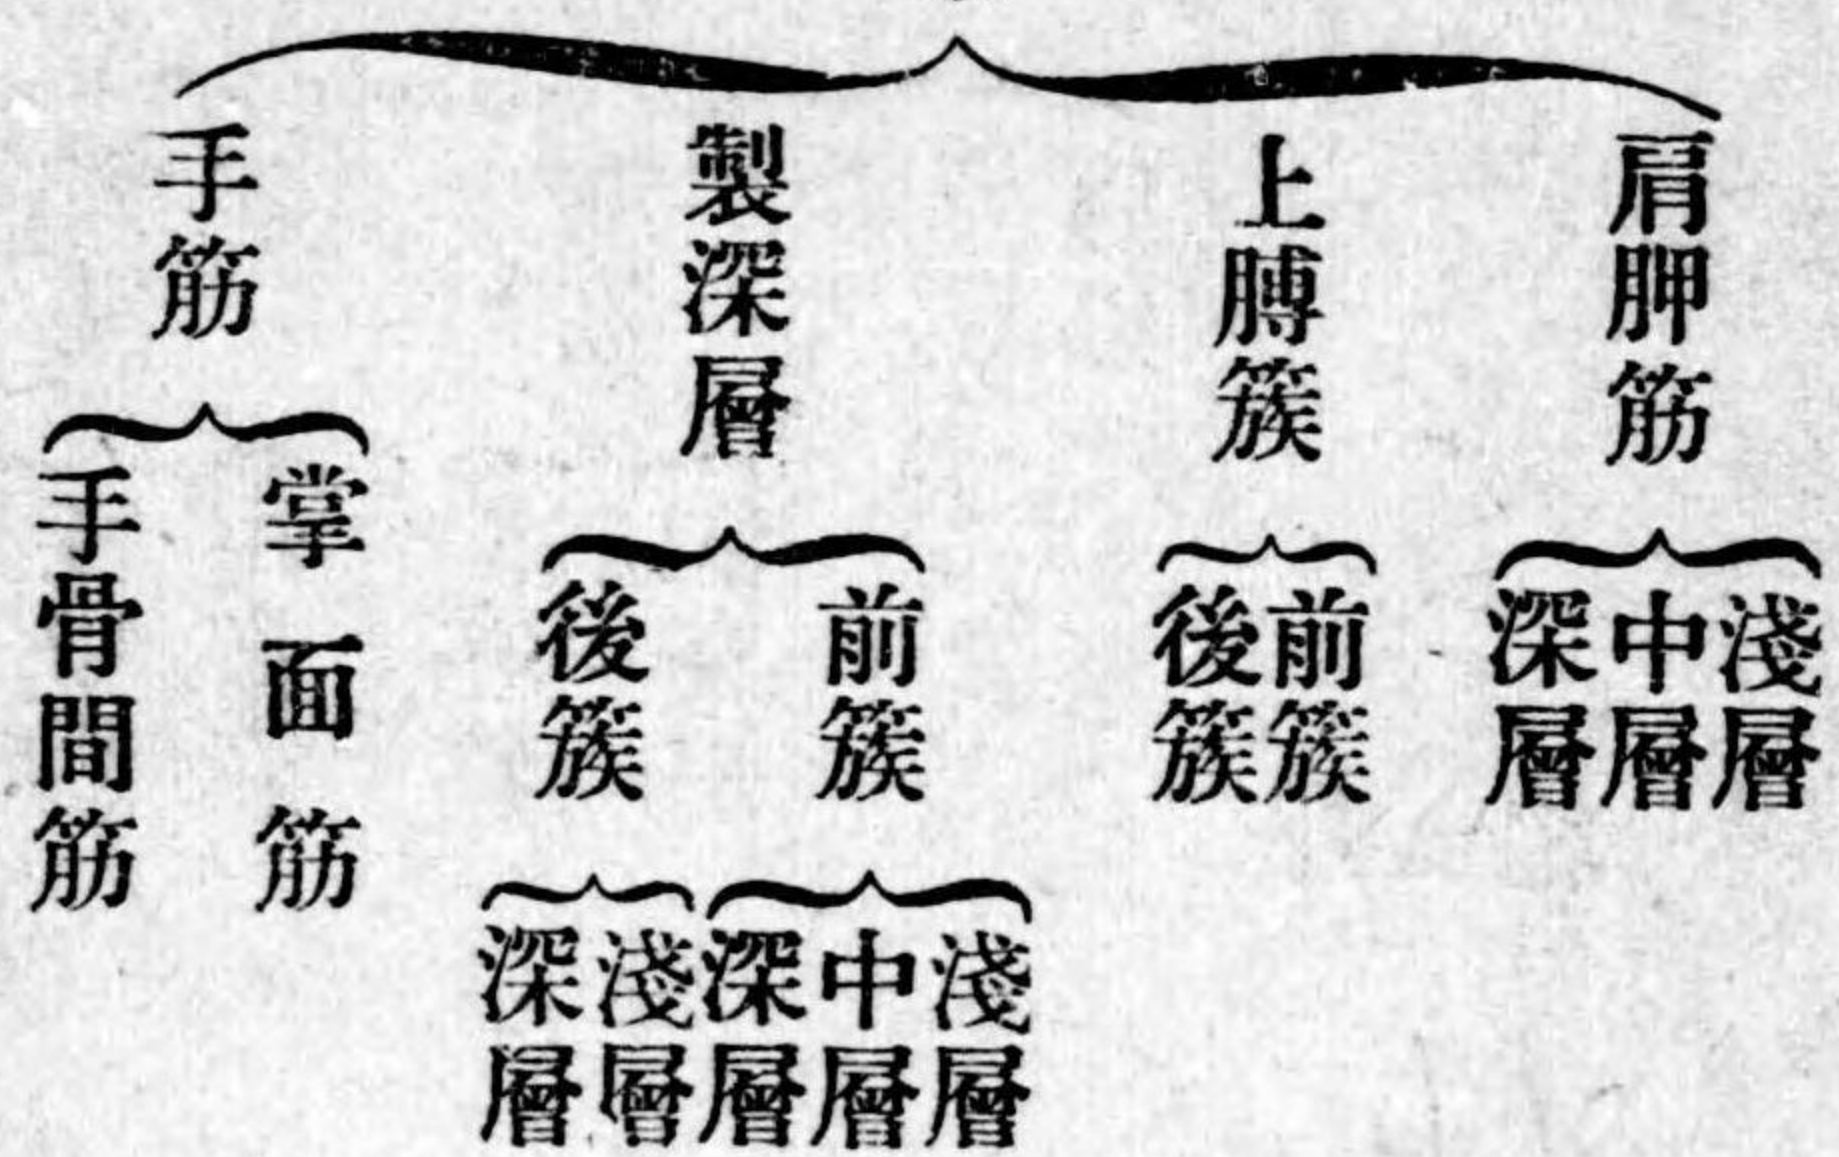 肩胛筋
淺層
中層
深層
上膊簇
前簇
後簇
製深層
前簇
淺層
中層
深層
後簇
淺層
深層
手筋
掌面筋
手骨間筋